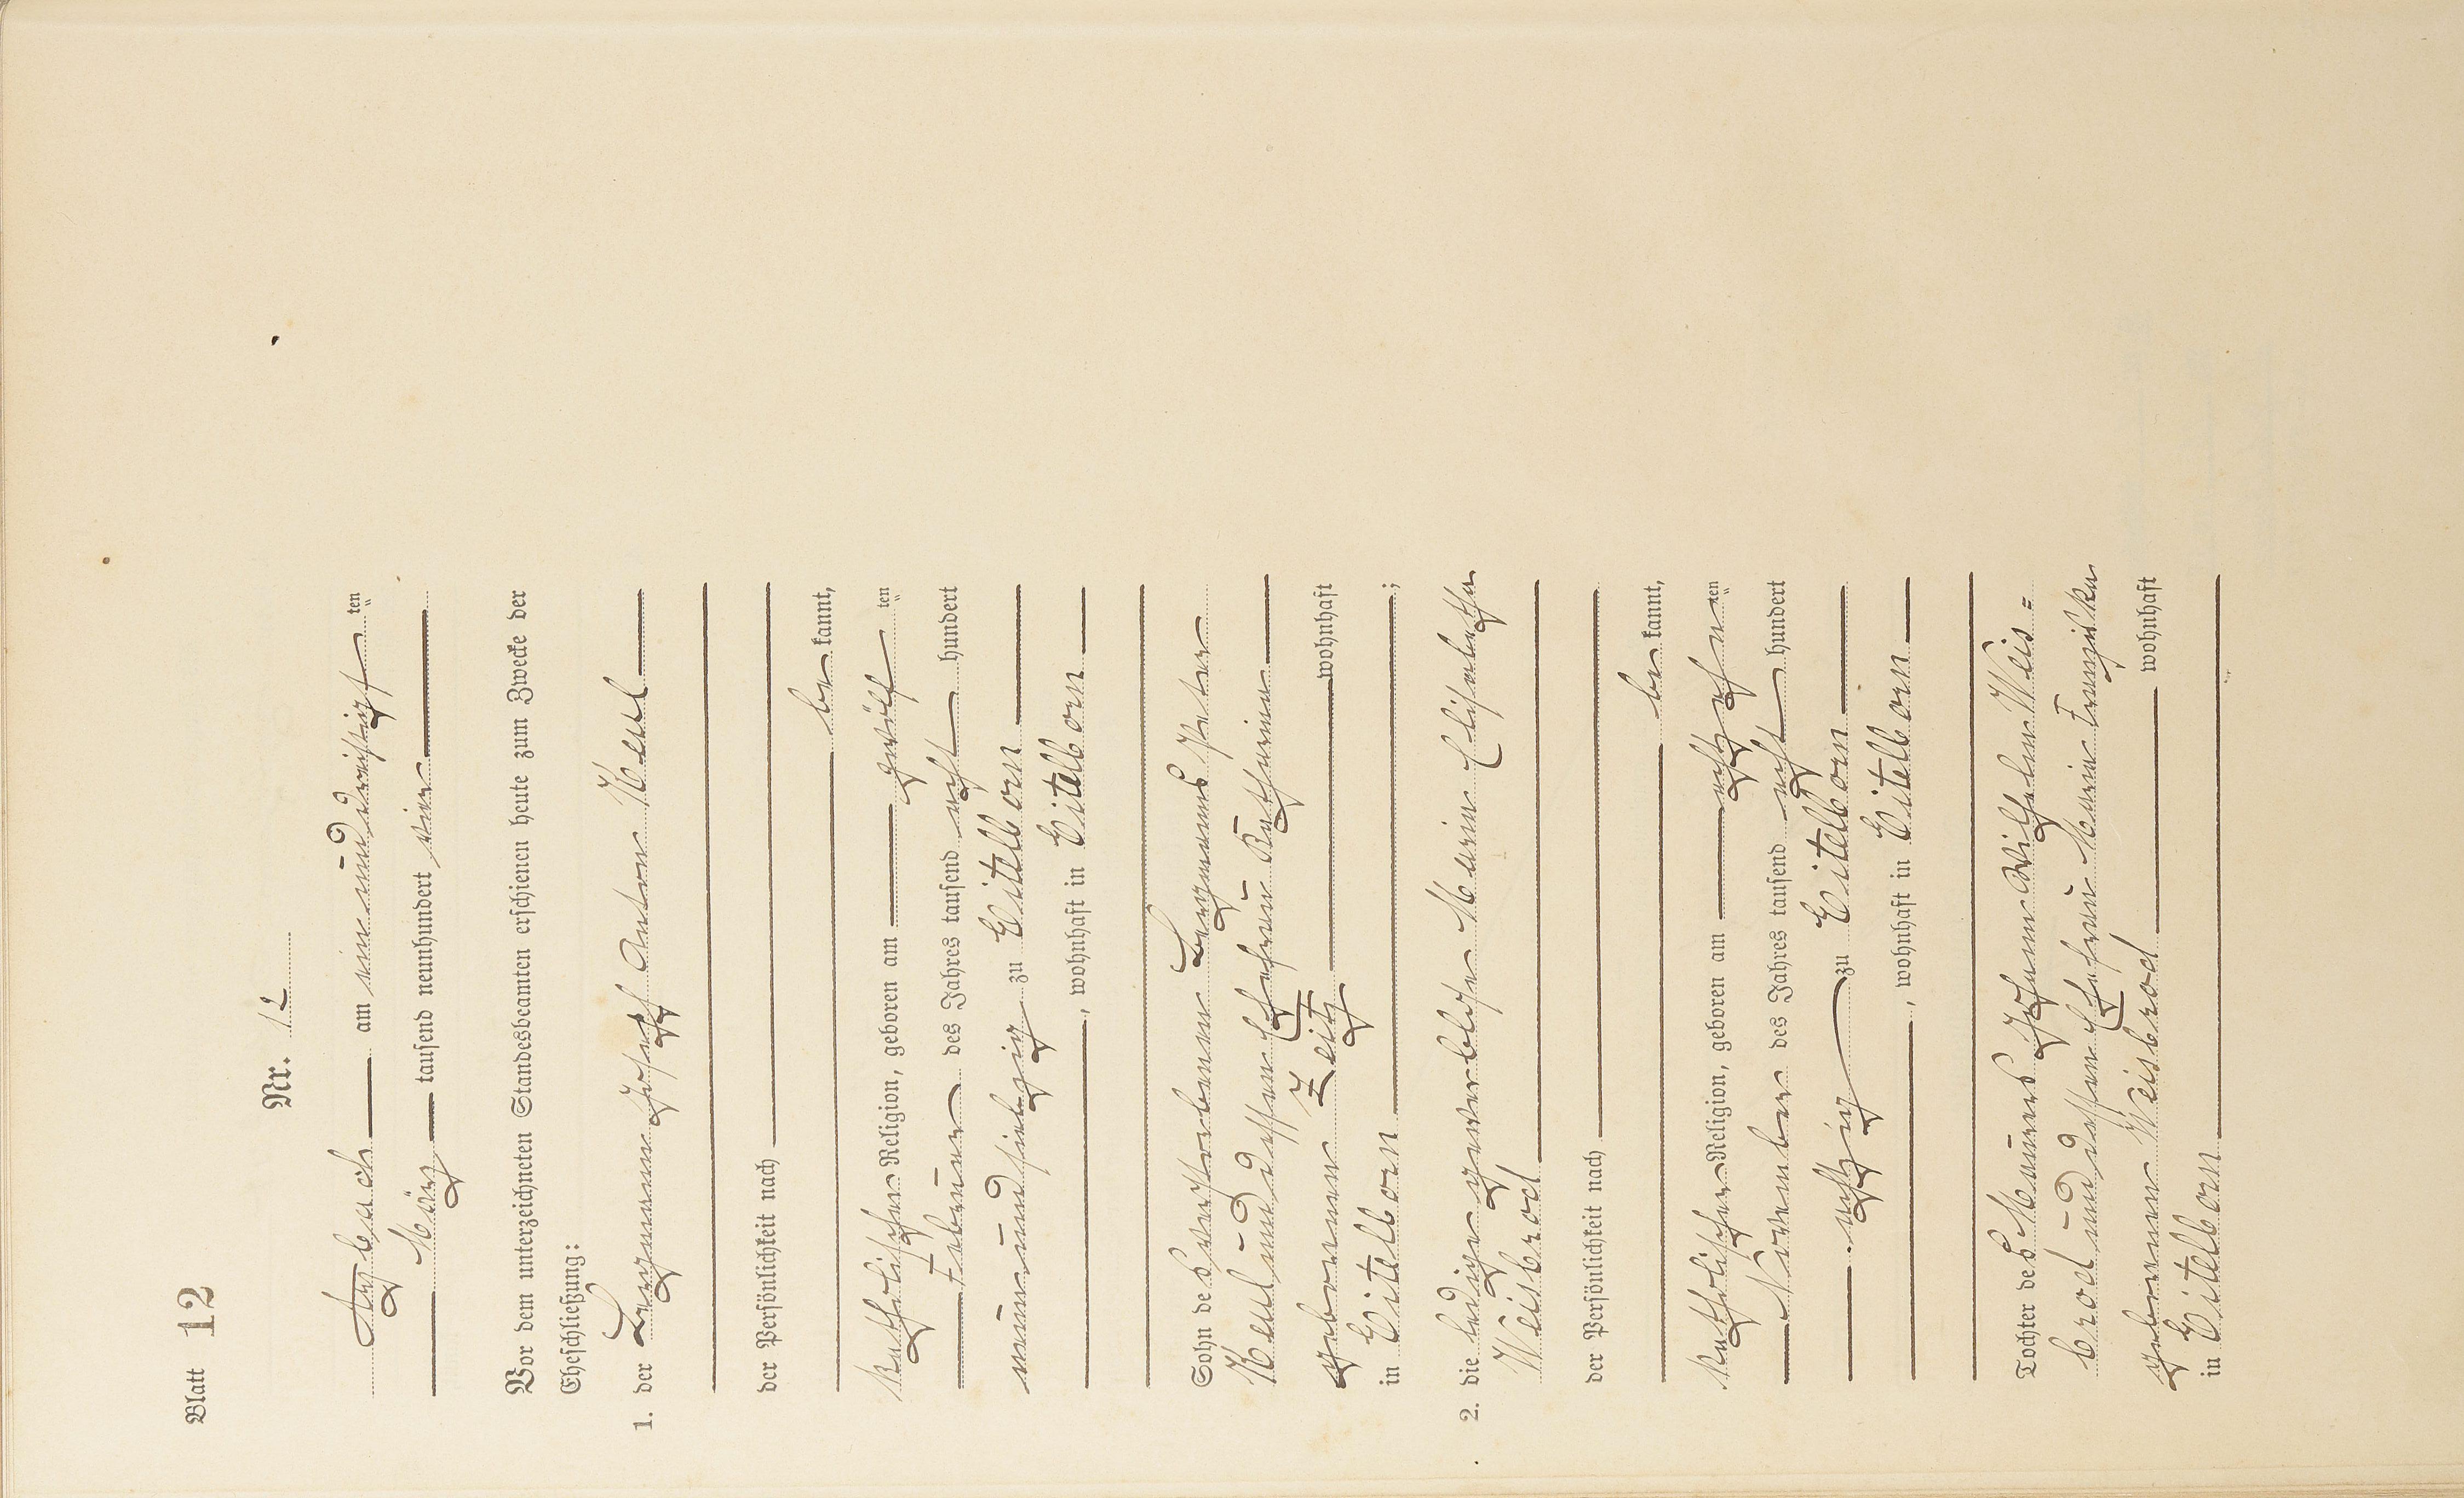 Blatt 12
Nr. 12
Arzbach am ein und dreißigsten
März tausend neunhundert vier
Vor dem unterzeichneten Standesbeamten erschienen heute zum Zwecke der
Eheschließung:
1. der Bergmann Joseph Anton Keul
der Persönlichkeit nach
be kannt,
katholischer Religion, geboren am zwölften
Februar des Jahres tausend acht hundert
neun und siebzig zu Eitelborn
, wohnhaft in Eitelborn
Sohn des verstorbenen Bergmanns Peter
Keul und dessen Ehefrau Katharina
geborenen Zeitz wohnhaft
in Eitelborn ;
2. die ledige gewerblose Maria Elisabetha
Weisbrod
der Persönlichkeit nach
be kannt,
katholischer Religion, geboren am achtzehnten
November des Jahres tausend acht hundert
achtzig zu Eitelborn
, wohnhaft in Eitelborn
Tochter des Maurers Johann Wilhelm Weis=
brod und dessen Ehefrau Maria Franziska
geborenen Weisbrod wohnhaft
in Eitelborn